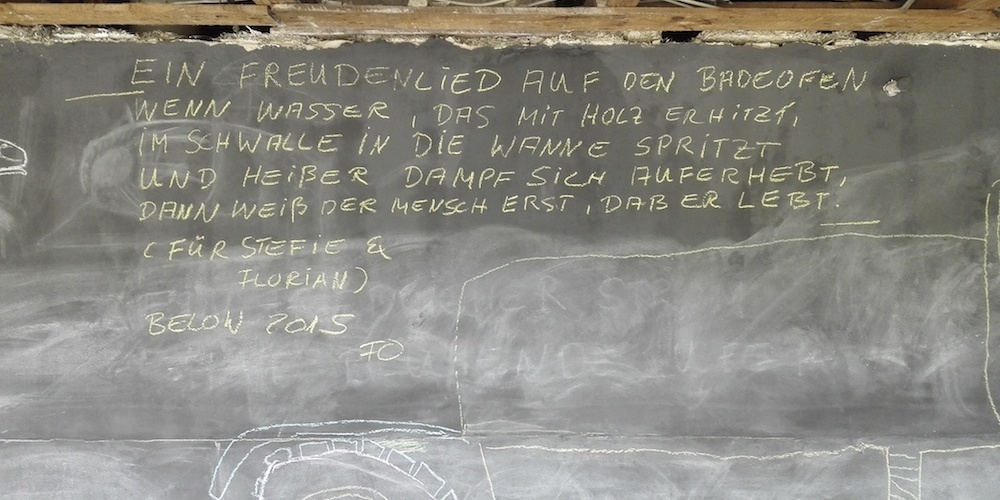 EIN FREUDENLIED AUF DEN BADEOFEN
WENN WASSER, DAS MIT HOLZ ERHITZT,
IM SCHWALLE IN DIE WANNE SPRITZT
UND HEIßER DAMPF SICH AUFERHEBT,
DANN WEIß DER MENSCH ERST, DAß ER LEBT.
(FÜR STEFIE &
FLORIAN)
BELOW 2015
FO